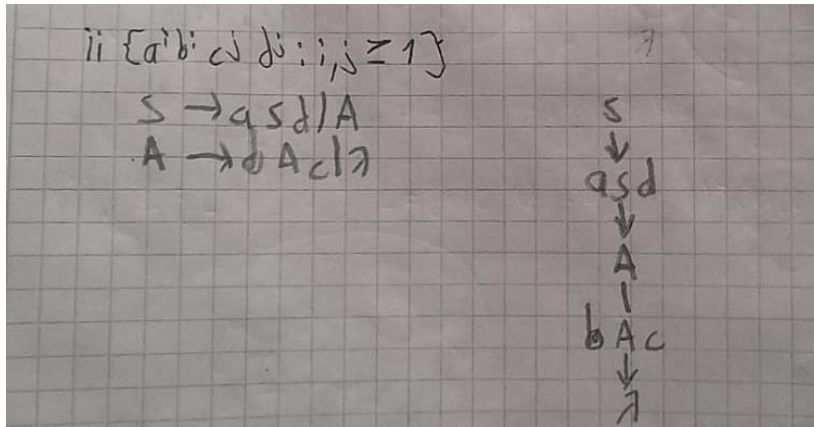 ii {aⁱbⁱ cʲ dʲ : i,j ≥ 1}
S → aSd | A
A → bAc | λ
λ
S
↓
aSd
↓
A
|
bAc
↓
λ